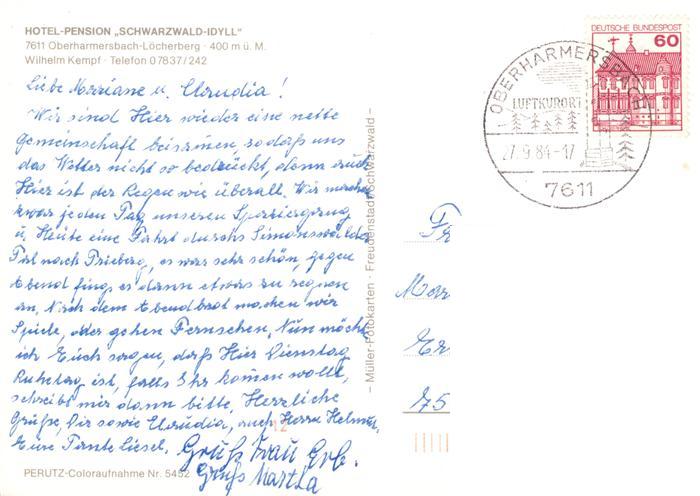 HOTEL-PENSION „SCHWARZWALD-IDYLL"
7611 Oberharmersbach-Löcherberg · 400 m ü. M.
Wilhelm Kempf · Telefon 07837/242
Liebe Mariane u. Claudia!
Wir sind Hier wieder eine nette
Gemeinschaft beisamen, sodaß uns
das Wetter nicht so bedrückt, denn auch
Hier ist der Regen wie überall. Wir machen
zwar jeden Tag unseren Spaziergang
u. Heute eine Fahrt durchs Simonswälder
Tal nach Trieberg, es war sehr schön, gegen
Abend fing es dann etwas zu regnen
an. Nach dem Abendbrot machen wir
Spiele, oder gehen Fernsehen. Nun möcht
ich Euch sagen, daß Hier Dienstag
Ruhetag ist, falls Ihr komen wollt,
schreibt mir dann bitte. Herzliche
Grüße, Dir sowie Claudia, auch Herrn Helmut
Eure Tante Liesel. Gruß Frau Erb.
Gruß Martha
PERUTZ-Coloraufnahme Nr. 5452
– Müller-Fotokarten · Freudenstadt/Schwarzwald –
DEUTSCHE BUNDESPOST
60
OBERHARMERSBACH
LUFTKURORT
27.9.84-17
7611
Fr
Mar
Er
75
12